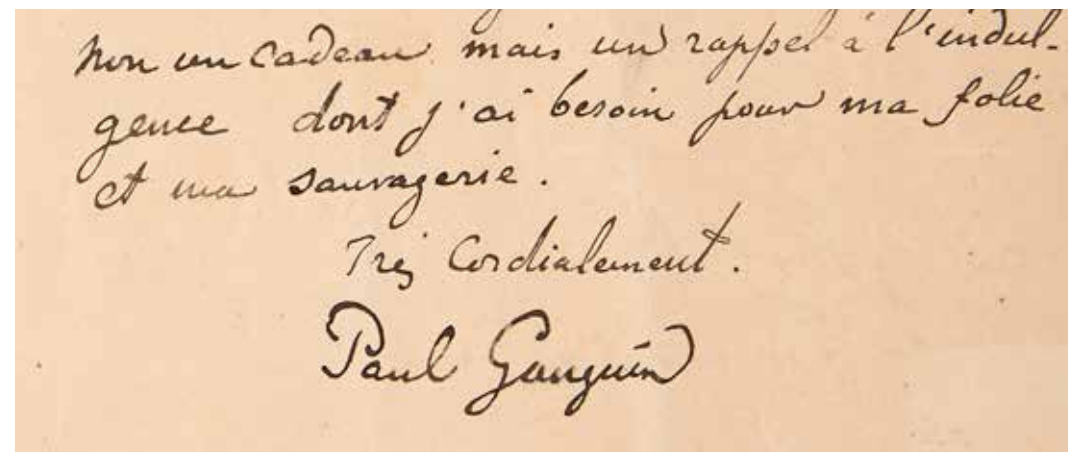 non un cadeau mais un rappel à l'indul-
gence dont j'ai besoin pour ma folie
et ma sauvagerie.
Très Cordialement.
Paul Gauguin